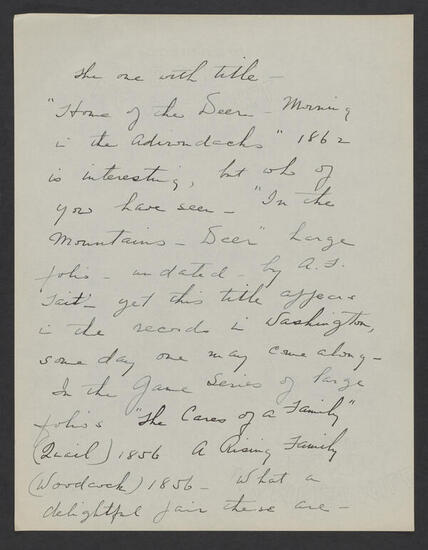 The one with title -
"Home of the Deer - Morning
in the Adirondacks" 1862
is interesting, but who of
you have seen - "In the
Mountains - Deer" Large
folio - undated - by A.F.
Tait - yet this title appears
in the records in Washington,
some day one may come along -
In the Game Series of large
folios "The Cares of a Family"
(Quail) 1856 A Rising Family
(Woodcock) 1856 - What a
delightful pair these are -